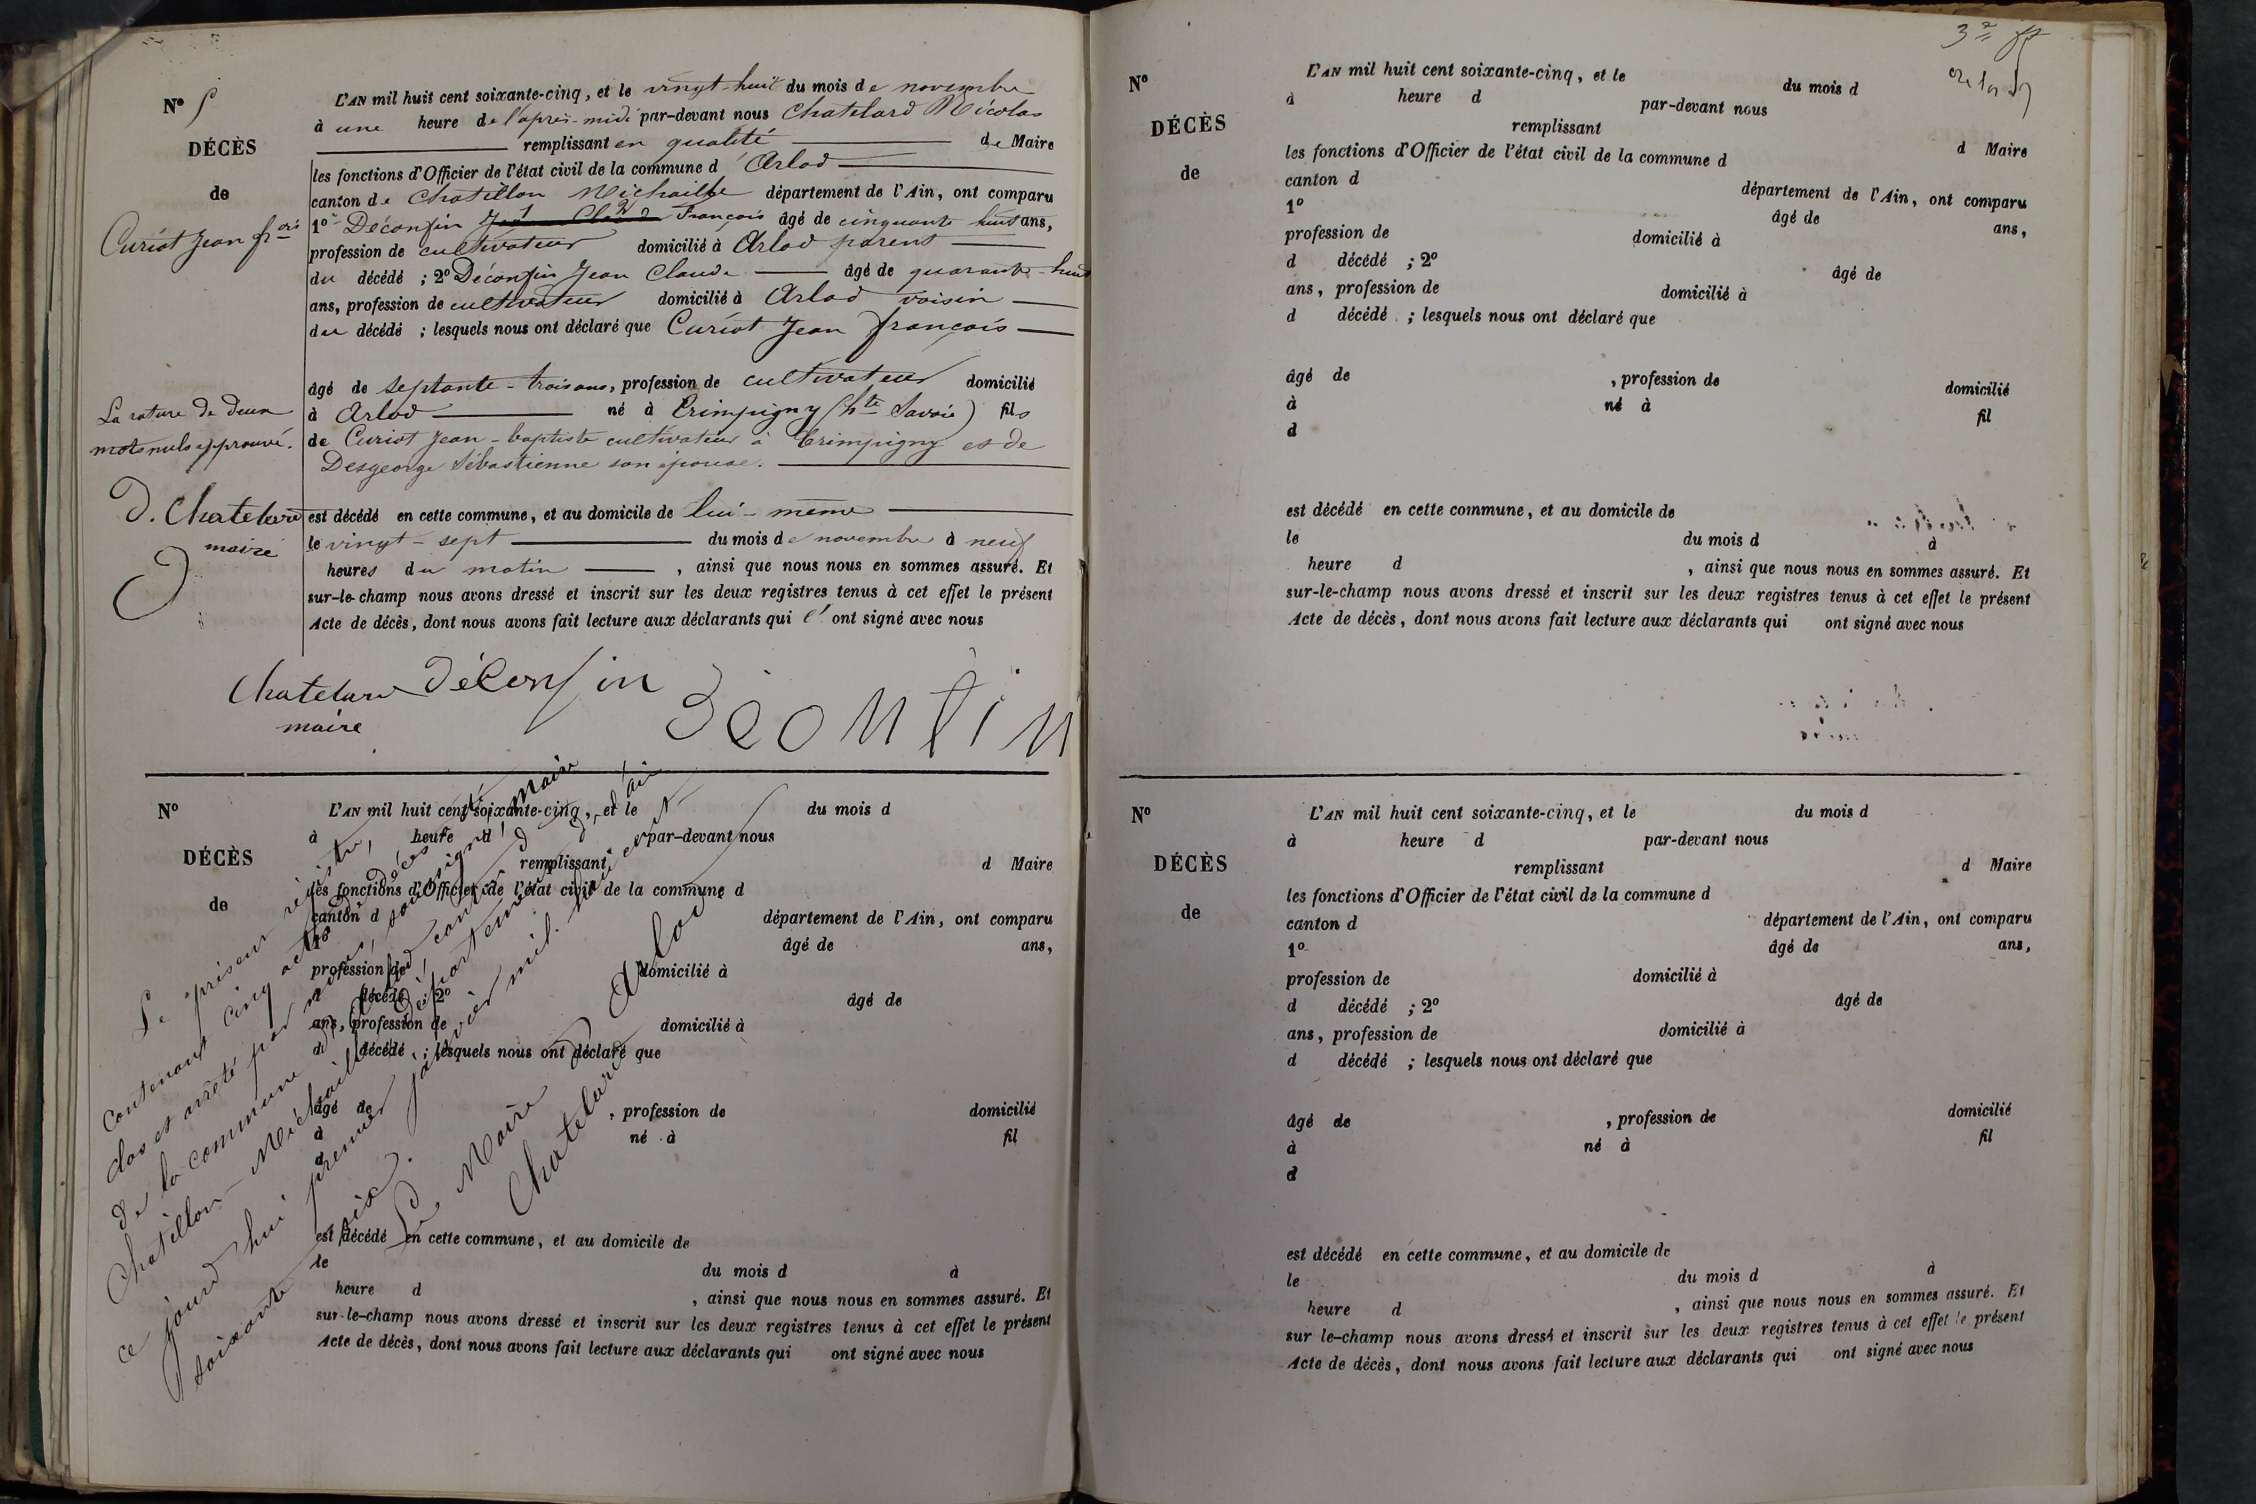 Nº 5
DÉCÈS
de
Curiot Jean frois
L'AN mil huit cent soixante-cinq, et le vingt-huit du mois de novembre
à une heure de l'après-midi par-devant nous Chatelard Nicolas
remplissant en qualité de Maire
les fonctions d'Officier de l'état civil de la commune d'Arlod
canton de Chatillon Michaille département de l'Ain, ont comparu
1º Déconfin François âgé de cinquante huit ans,
profession de cultivateur domicilié à Arlod parent
du décédé ; 2º Déconfin Jean Claude âgé de quarante-huit
ans, profession de cultivateur domicilié à Arlod voisin
du décédé ; lesquels nous ont déclaré que Curiot Jean françois
âgé de septante-trois ans, profession de cultivateur domicilié
à Arlod né à Crimpigny (hte Savoie) fils
de Curiot Jean-baptiste cultivateur à Crimpigny et de
Desgeorge Sébastienne son épouse.
La rature de deux
mots nuls approuvé.
D. Chatelard
maire
est décédé en cette commune, et au domicile de lui-même
le vingt-sept du mois de novembre à neuf
heures du matin, ainsi que nous nous en sommes assuré. Et
sur-le-champ nous avons dressé et inscrit sur les deux registres tenus à cet effet le présent
Acte de décès, dont nous avons fait lecture aux déclarants qui l' ont signé avec nous
Chatelard Déconfin
maire
Déconfin
Nº
DÉCÈS
de
L'AN mil huit cent soixante-cinq, et le du mois d
à heure d par-devant nous
remplissant d Maire
les fonctions d'Officier de l'état civil de la commune d
canton d département de l'Ain, ont comparu
1º âgé de ans,
profession de domicilié à
d décédé ; 2º âgé de
ans, profession de domicilié à
d décédé ; lesquels nous ont déclaré que
âgé de , profession de domicilié
à né à fil
d
est décédé en cette commune, et au domicile de
le du mois d à
heure d , ainsi que nous nous en sommes assuré. Et
sur-le-champ nous avons dressé et inscrit sur les deux registres tenus à cet effet le présent
Acte de décès, dont nous avons fait lecture aux déclarants qui ont signé avec nous
Le présent registre,
contenant cinq actes de décès a été
clos et arrêté par nous, soussigné, Maire
de la commune d'Arlod canton de
Chatillon-Michaille, département de l'ain
ce jourd'hui premier janvier mil huit cent
soixante six.
Le Maire d'Arlod
Chatelard
Nº
DÉCÈS
de
L'AN mil huit cent soixante-cinq, et le du mois d
à heure d par-devant nous
remplissant d Maire
les fonctions d'Officier de l'état civil de la commune d
canton d département de l'Ain, ont comparu
1º âgé de ans,
profession de domicilié à
d décédé ; 2º âgé de
ans, profession de domicilié à
d décédé ; lesquels nous ont déclaré que
âgé de , profession de domicilié
à né à fil
d
est décédé en cette commune, et au domicile de
le du mois d à
heure d , ainsi que nous nous en sommes assuré. Et
sur-le-champ nous avons dressé et inscrit sur les deux registres tenus à cet effet le présent
Acte de décès, dont nous avons fait lecture aux déclarants qui ont signé avec nous
Nº
DÉCÈS
de
L'AN mil huit cent soixante-cinq, et le du mois d
à heure d par-devant nous
remplissant d Maire
les fonctions d'Officier de l'état civil de la commune d
canton d département de l'Ain, ont comparu
1º âgé de ans,
profession de domicilié à
d décédé ; 2º âgé de
ans, profession de domicilié à
d décédé ; lesquels nous ont déclaré que
âgé de , profession de domicilié
à né à fil
d
est décédé en cette commune, et au domicile de
le du mois d à
heure d , ainsi que nous nous en sommes assuré. Et
sur le-champ nous avons dressé et inscrit sur les deux registres tenus à cet effet le présent
Acte de décès, dont nous avons fait lecture aux déclarants qui ont signé avec nous